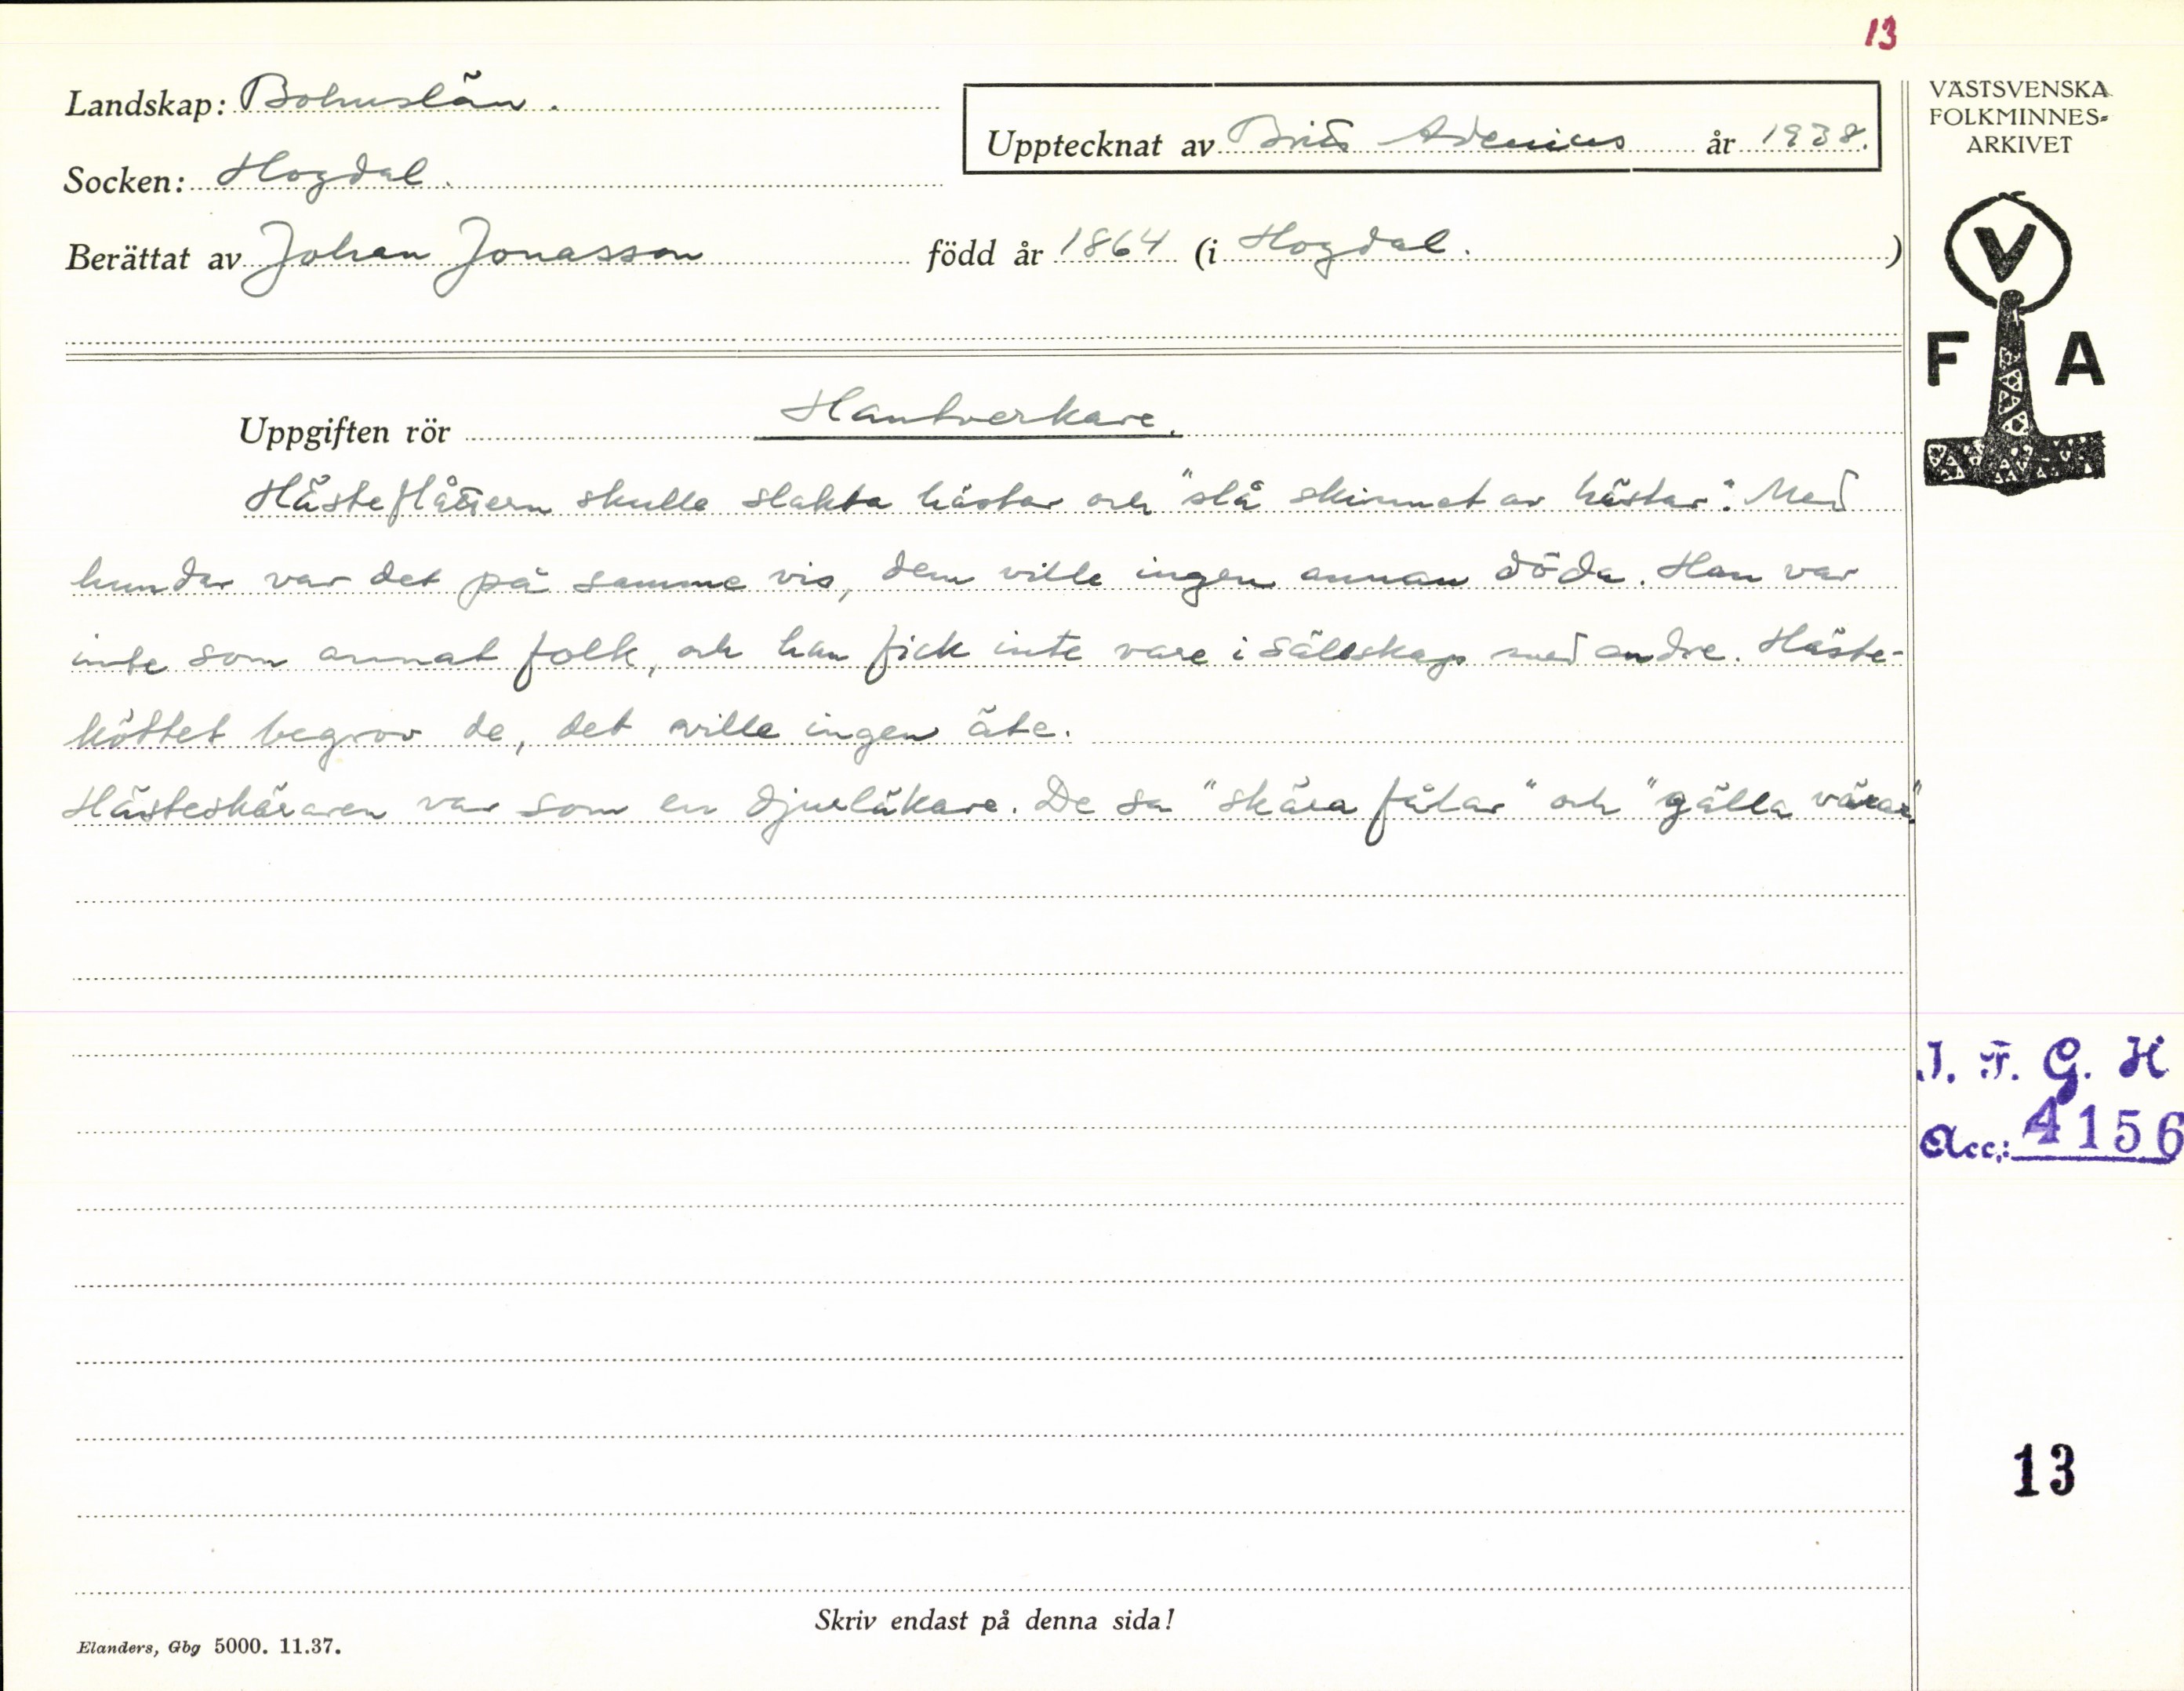 13
Landskap: Bohuslän.
Upptecknat av Brita Adenius år 1938.
Socken: Hogdal.
Berättat av Johan Jonasson född år 1864 (i Hogdal.)
VÄSTSVENSKA
FOLKMINNES-
ARKIVET
V
F A
Uppgiften rör Hantverkare.
skulle slakta hästar och "slå skinnet av hästar". Med
hundar var det på samme vis, dem ville ingen annan döda. Han var
inte som annat folk, och han fick inte vare i sällskap med andre. Häste-
köttet begrov de, det ville ingen äte.
Hästeskäraren var som en djurläkare. De sa "skära fålar" och "gälla värar".
I. F. G. H
Acc.: 4156
13
Skriv endast på denna sida!
Elanders, Gbg 5000. 11.37.